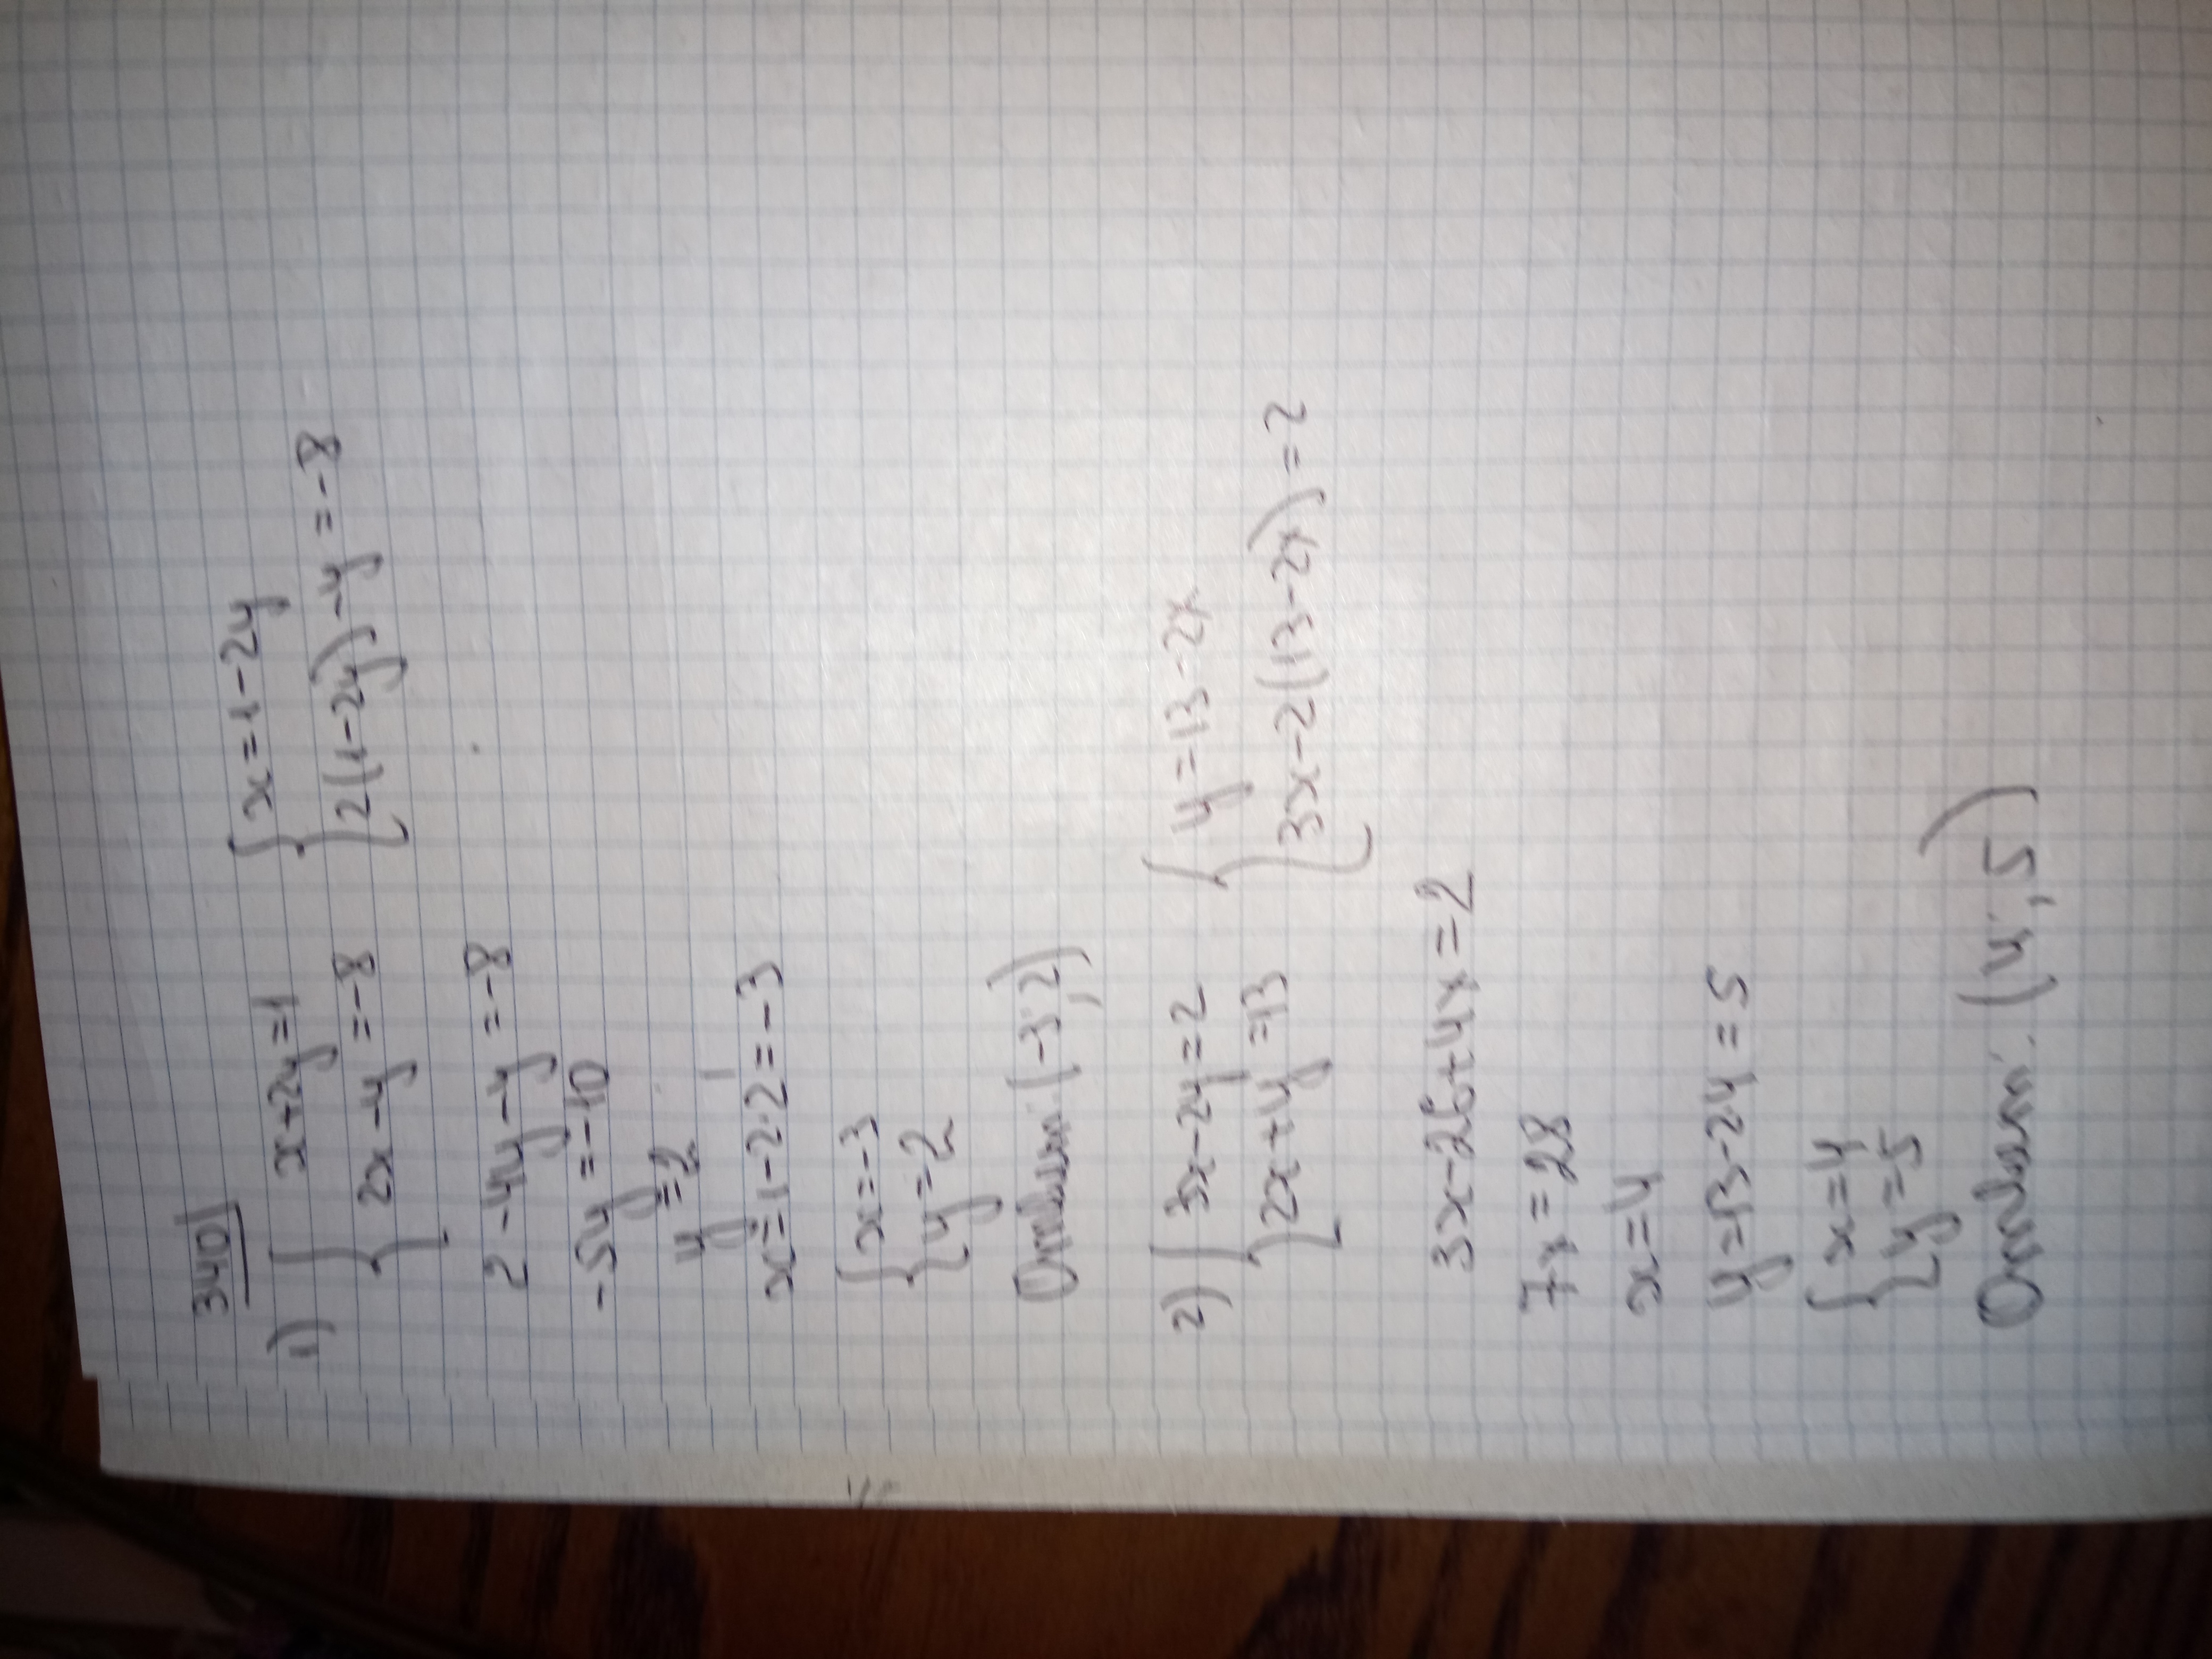 340
1) { x+2y=1 { x=1-2y
2x-y=-8 2(1-2y)-y=-8
2-4y-y=-8
-5y=-10
y=2
x=1-2·2=-3
{ x=-3
y=2
Ответ: (-3; 2)
2) { 3x-2y=2 { y=13-2x
2x+y=13 3x-2(13-2x)=2
3x-26+4x=2
7x=28
x=4
y=13-2·4=5
{ x=4
y=5
Ответ: (4; 5)